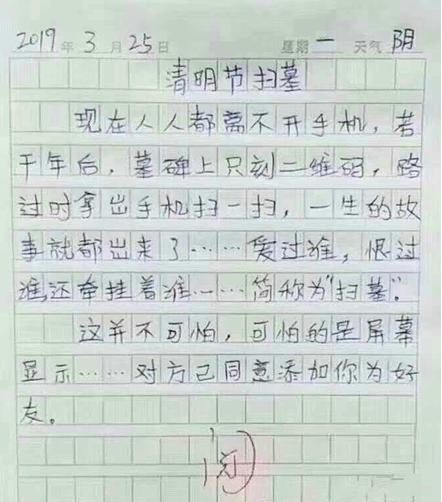 2019年3月25日 星期一 天气阴
清明节扫墓
现在人人都离不开手机,若
干年后,墓碑上只刻二维码,路
过时拿出手机扫一扫,一生的故
事就都出来了……爱过谁,恨过
谁,还牵挂着谁……简称为"扫墓".
这并不可怕,可怕的是屏幕
显示……对方已同意添加你为好
友。